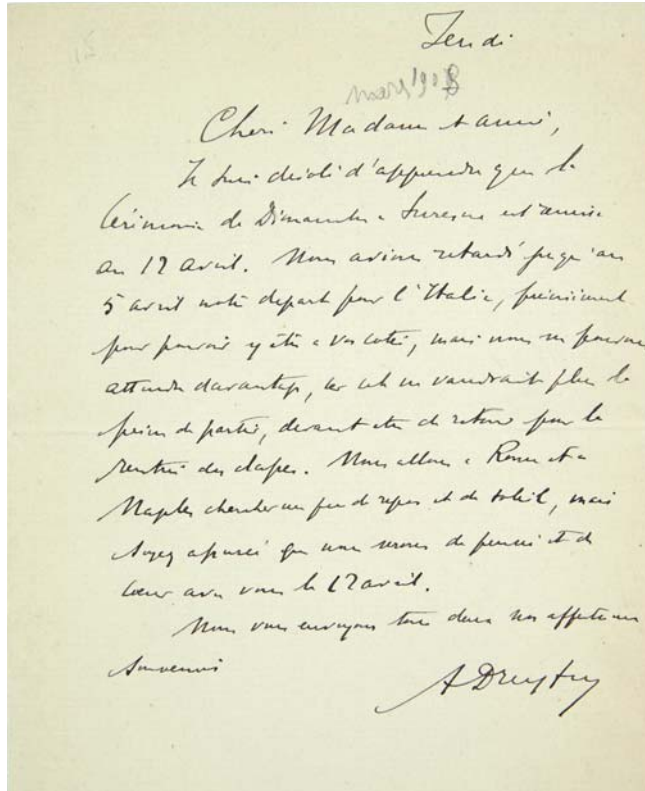 Jeudi
mars 1908
Chère Madame et amie,
Je suis désolé d'apprendre que la
Cérémonie de Dimanche à Suresnes est remise
au 12 avril. Nous avions retardé jusqu'au
5 avril notre départ pour l'Italie, précisément
pour pouvoir être à vos côtés, mais nous ne pouvons
attendre davantage, car cela ne vaudrait plus la
peine de partir, devant être de retour pour la
rentrée des classes. Nous allons à Rome et à
Naples chercher un peu de repos et de soleil, mais
soyez assurée que nous serons de pensée et de
cœur avec vous le 12 avril.
Nous vous envoyons tous deux nos affectueux
souvenirs
A Dreyfus